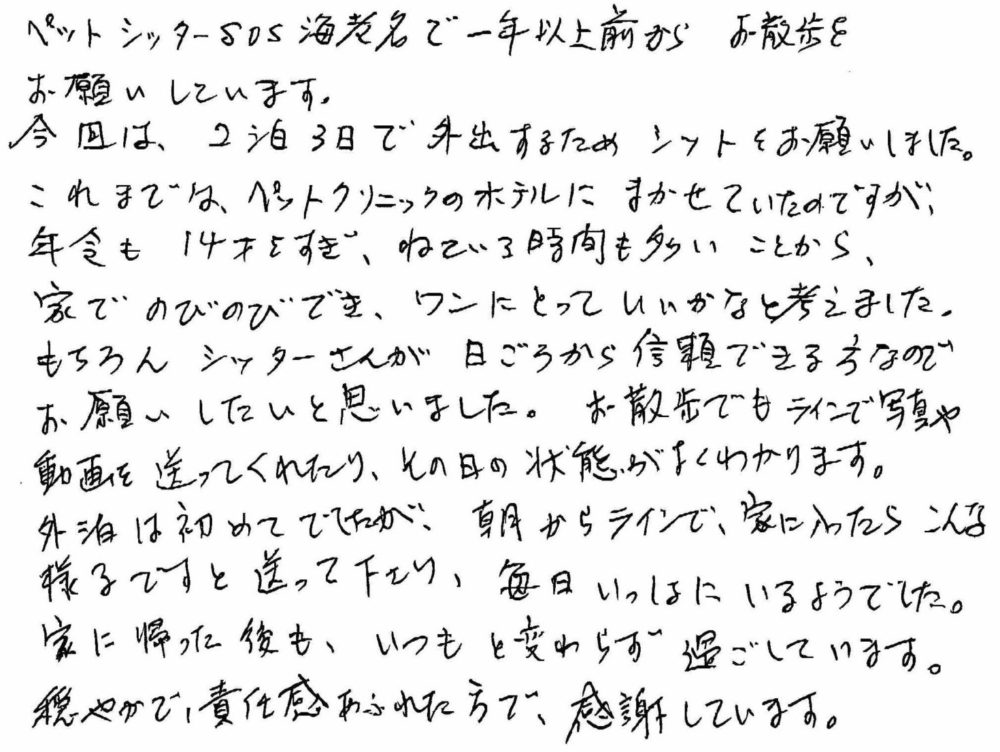 ペットシッターSOS海老名で一年以上前から お散歩を
お願いしています。
今回は、2泊3日で外出するためシットをお願いしました。
これまでは、ペットクリニックのホテルにまかせていたのですが、
年令も14才をすぎ、ねている時間も多いことから、
家でのびのびでき、ワンにとっていいかなと考えました。
もちろんシッターさんが日ごろから信頼できる方なので
お願いしたいと思いました。お散歩でもラインで写真や
動画を送ってくれたり、その日の状態がよくわかります。
外泊は初めてでしたが、朝からラインで、家に入ったらこんな
様子ですと送って下さり、毎日いっしょにいるようでした。
家に帰った後も、いつもと変わらず過ごしています。
穏やかで、責任感あふれた方で、感謝しています。